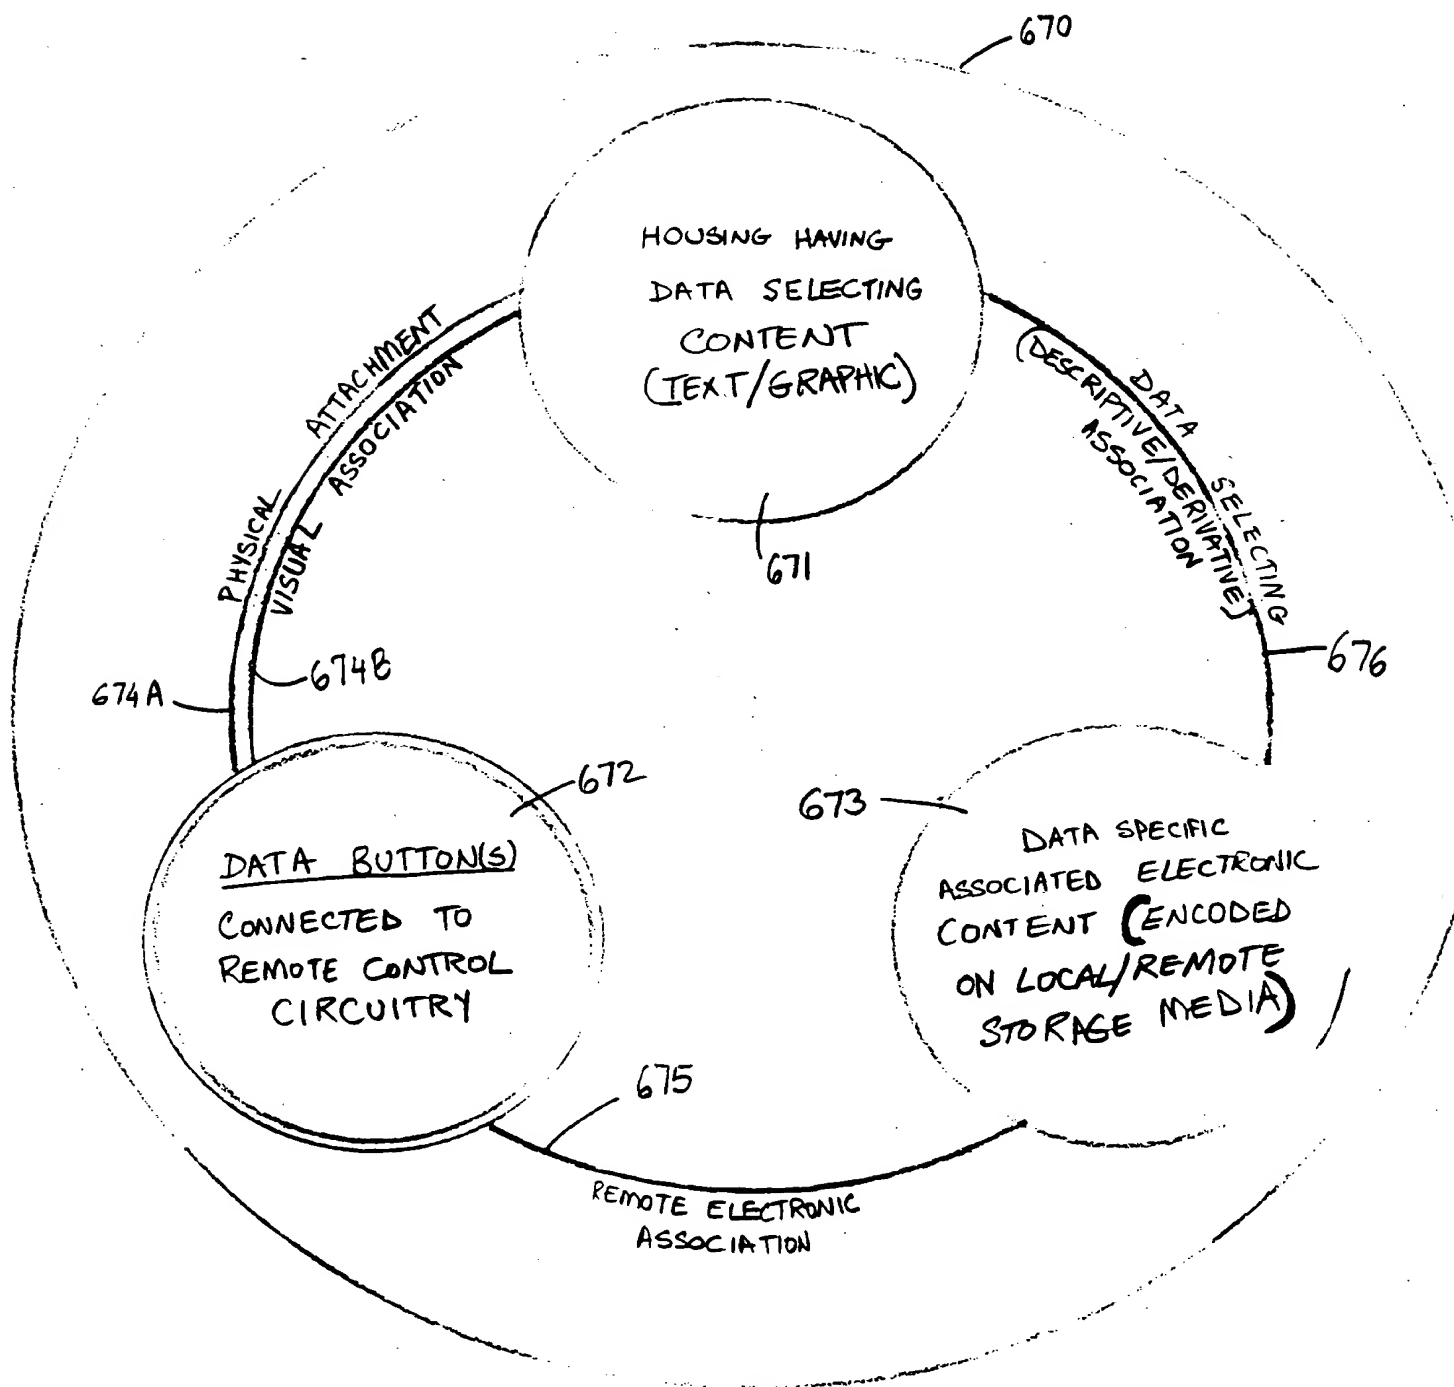 670
HOUSING HAVING
DATA SELECTING
CONTENT
(TEXT/GRAPHIC)
671
PHYSICAL ATTACHMENT
VISUAL ASSOCIATION
674A
674B
DATA SELECTING
(DESCRIPTIVE/DERIVATIVE)
ASSOCIATION
676
672
DATA BUTTON(S)
CONNECTED TO
REMOTE CONTROL
CIRCUITRY
673
DATA SPECIFIC
ASSOCIATED ELECTRONIC
CONTENT (ENCODED
ON LOCAL/REMOTE
STORAGE MEDIA)
675
REMOTE ELECTRONIC
ASSOCIATION